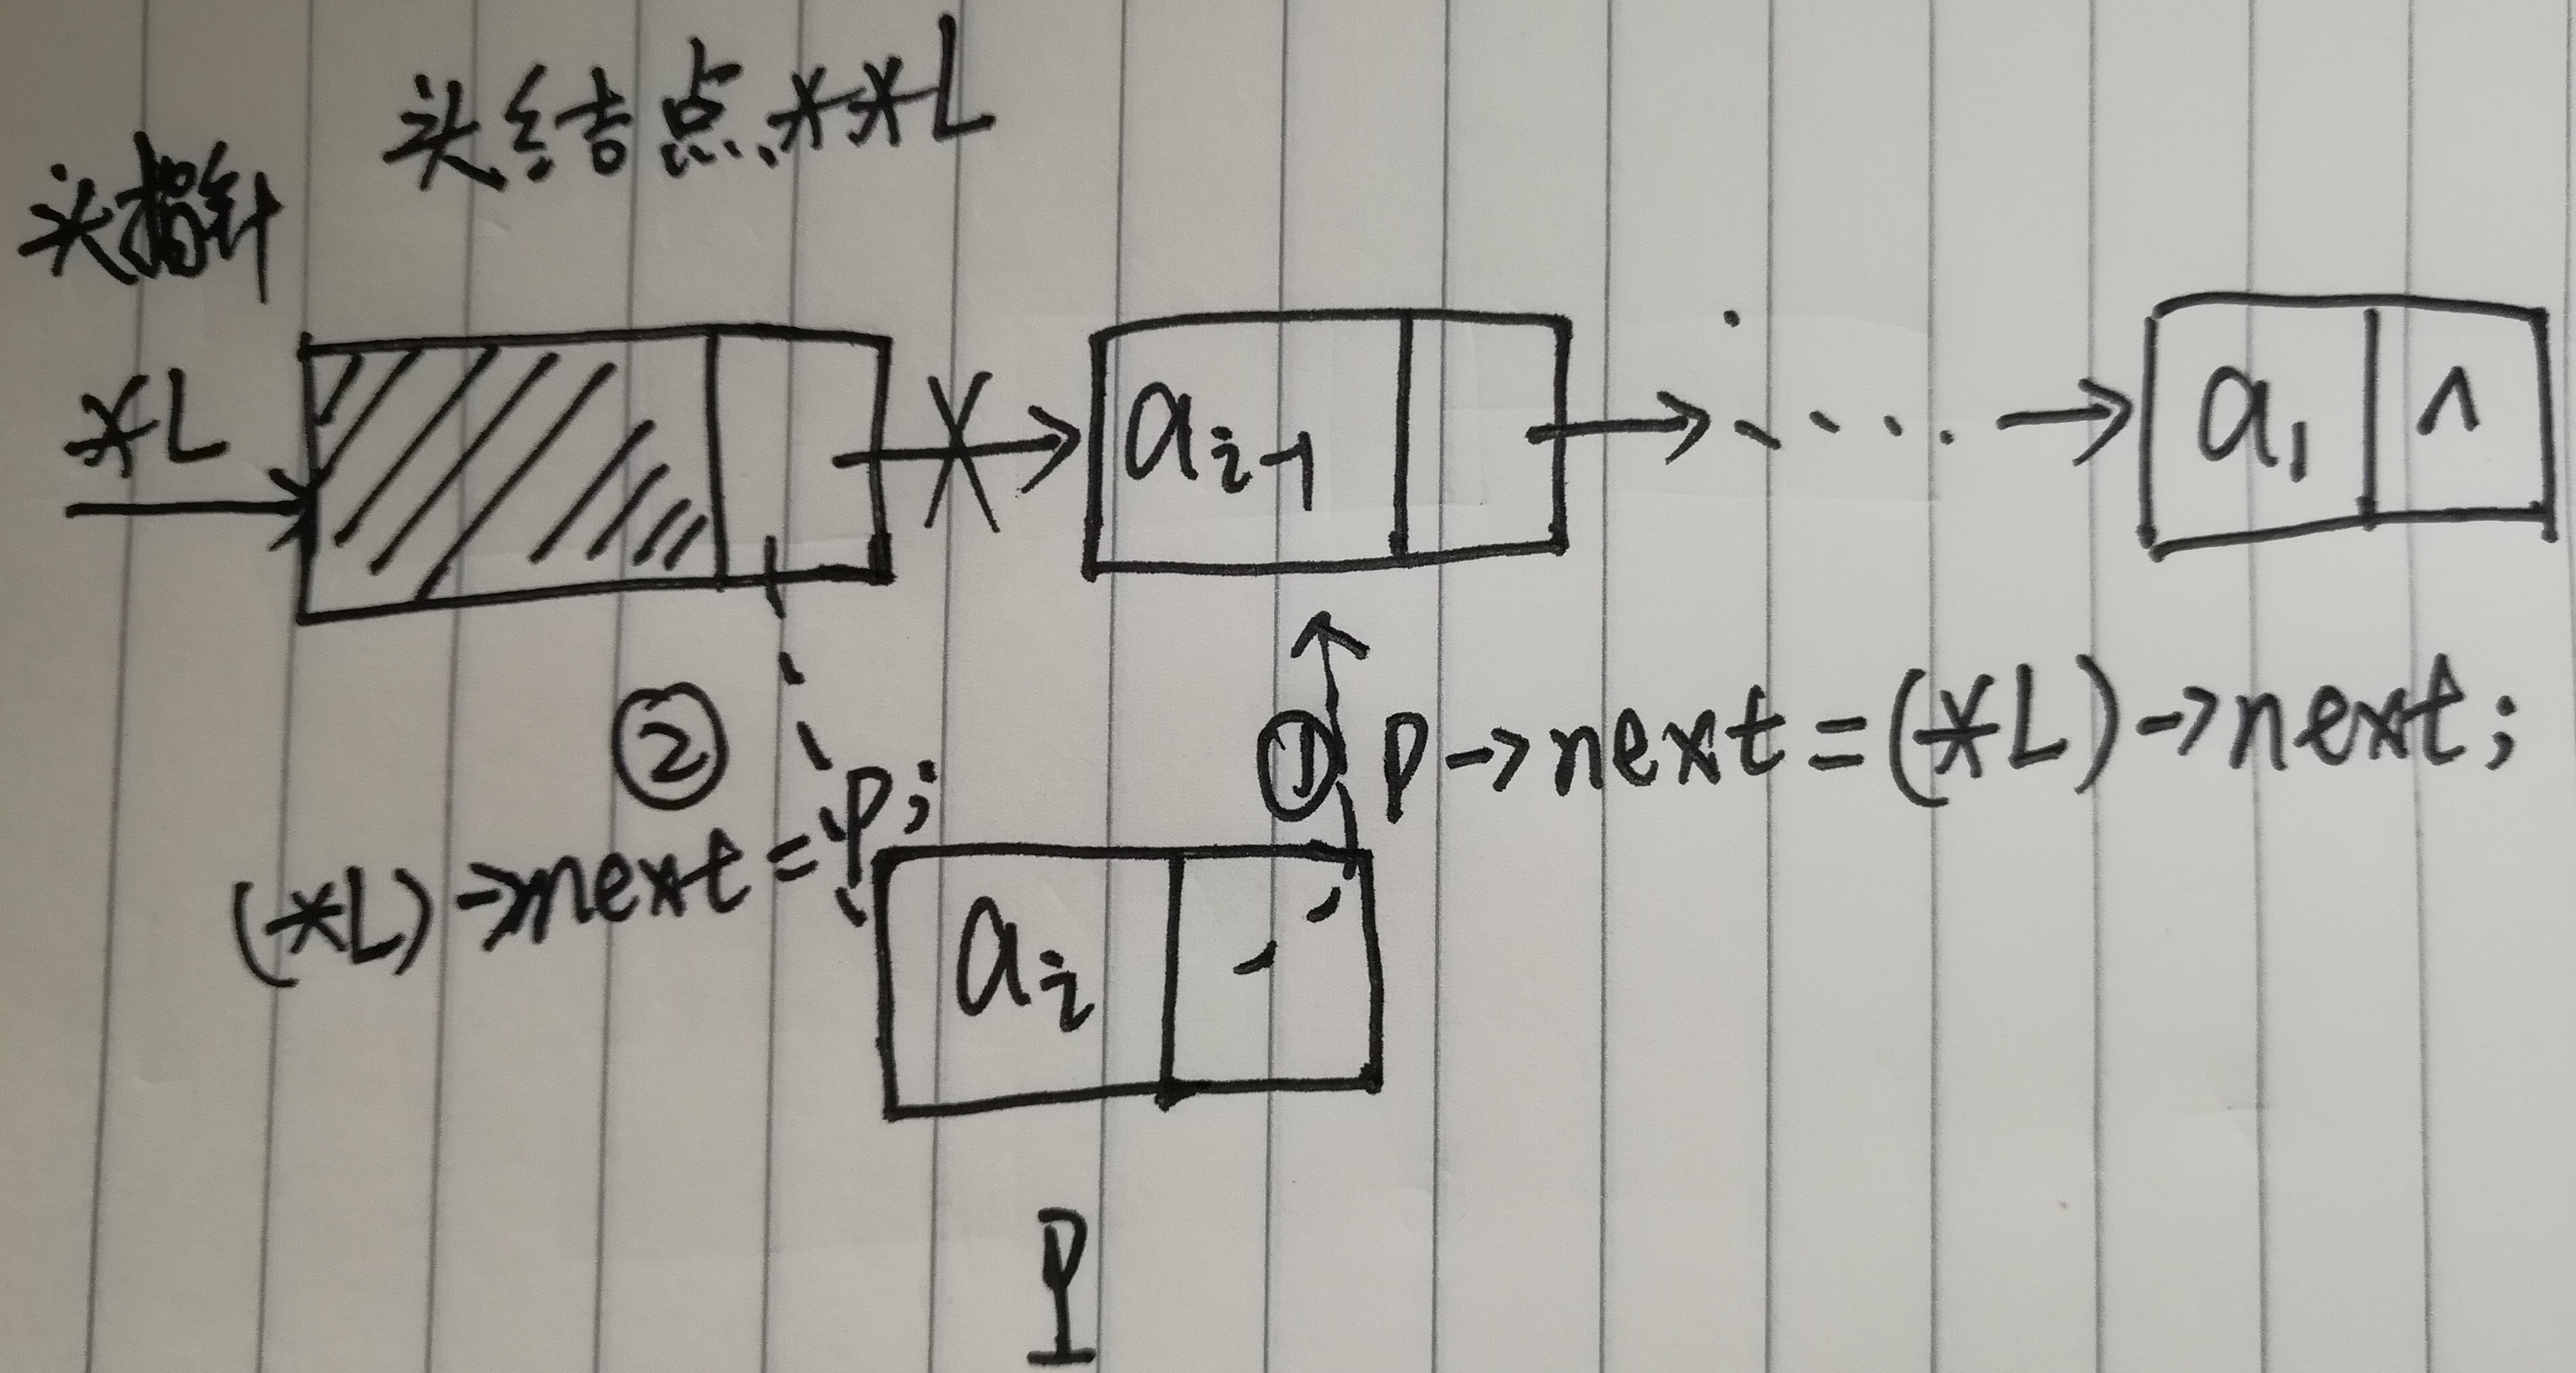 头结点**L
头指针
*L
a i-1
a1 ^
① p->next=(*L)->next;
②
(*L)->next=p;
ai
P